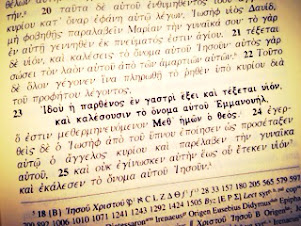 θέλων αὐτ
κυρίου κατ᾽ ὄναρ ἐφάνη αὐτῷ λέγων, Ἰωσὴφ υἱὸς Δαυίδ,
μὴ φοβηθῇς παραλαβεῖν Μαρίαν τὴν γυναῖκά σου· τὸ γὰρ
ἐν αὐτῇ γεννηθὲν ἐκ πνεύματός ἐστιν ἁγίου. 21 τέξεται
δὲ υἱόν, καὶ καλέσεις τὸ ὄνομα αὐτοῦ Ἰησοῦν· αὐτὸς γὰρ
σώσει τὸν λαὸν αὐτοῦ ἀπὸ τῶν ἁμαρτιῶν αὐτῶν. 22 Τοῦτο
δὲ ὅλον γέγονεν ἵνα πληρωθῇ τὸ ῥηθὲν ὑπὸ κυρίου διὰ
τοῦ προφήτου λέγοντος,
23 Ἰδοὺ ἡ παρθένος ἐν γαστρὶ ἕξει καὶ τέξεται υἱόν,
καὶ καλέσουσιν τὸ ὄνομα αὐτοῦ Ἐμμανουήλ,
ὅ ἐστιν μεθερμηνευόμενον Μεθ᾽ ἡμῶν ὁ θεός. 24 ἐγερ-
θεὶς δὲ ὁ Ἰωσὴφ ἀπὸ τοῦ ὕπνου ἐποίησεν ὡς προσέταξεν
αὐτῷ ὁ ἄγγελος κυρίου καὶ παρέλαβεν τὴν γυναῖκα
αὐτοῦ, 25 καὶ οὐκ ἐγίνωσκεν αὐτὴν ἕως οὗ ἔτεκεν υἱόν·
καὶ ἐκάλεσεν τὸ ὄνομα αὐτοῦ Ἰησοῦν.
18 {B} Ἰησοῦ Χριστοῦ 28 33 157 180 205 565 579 597
700 892 1006 1010 1071 1241 1243 1292 1424 1505
Irenaeus Origen Eusebius Didymus